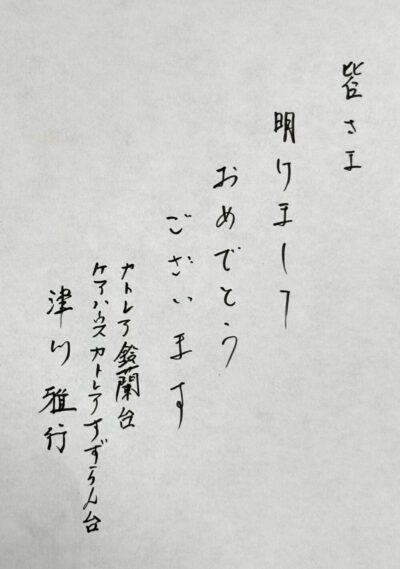 皆さま
明けまして
おめでとう
ございます
カトレア鈴蘭台
ケアハウスカトレアすずらん台
津川雅行